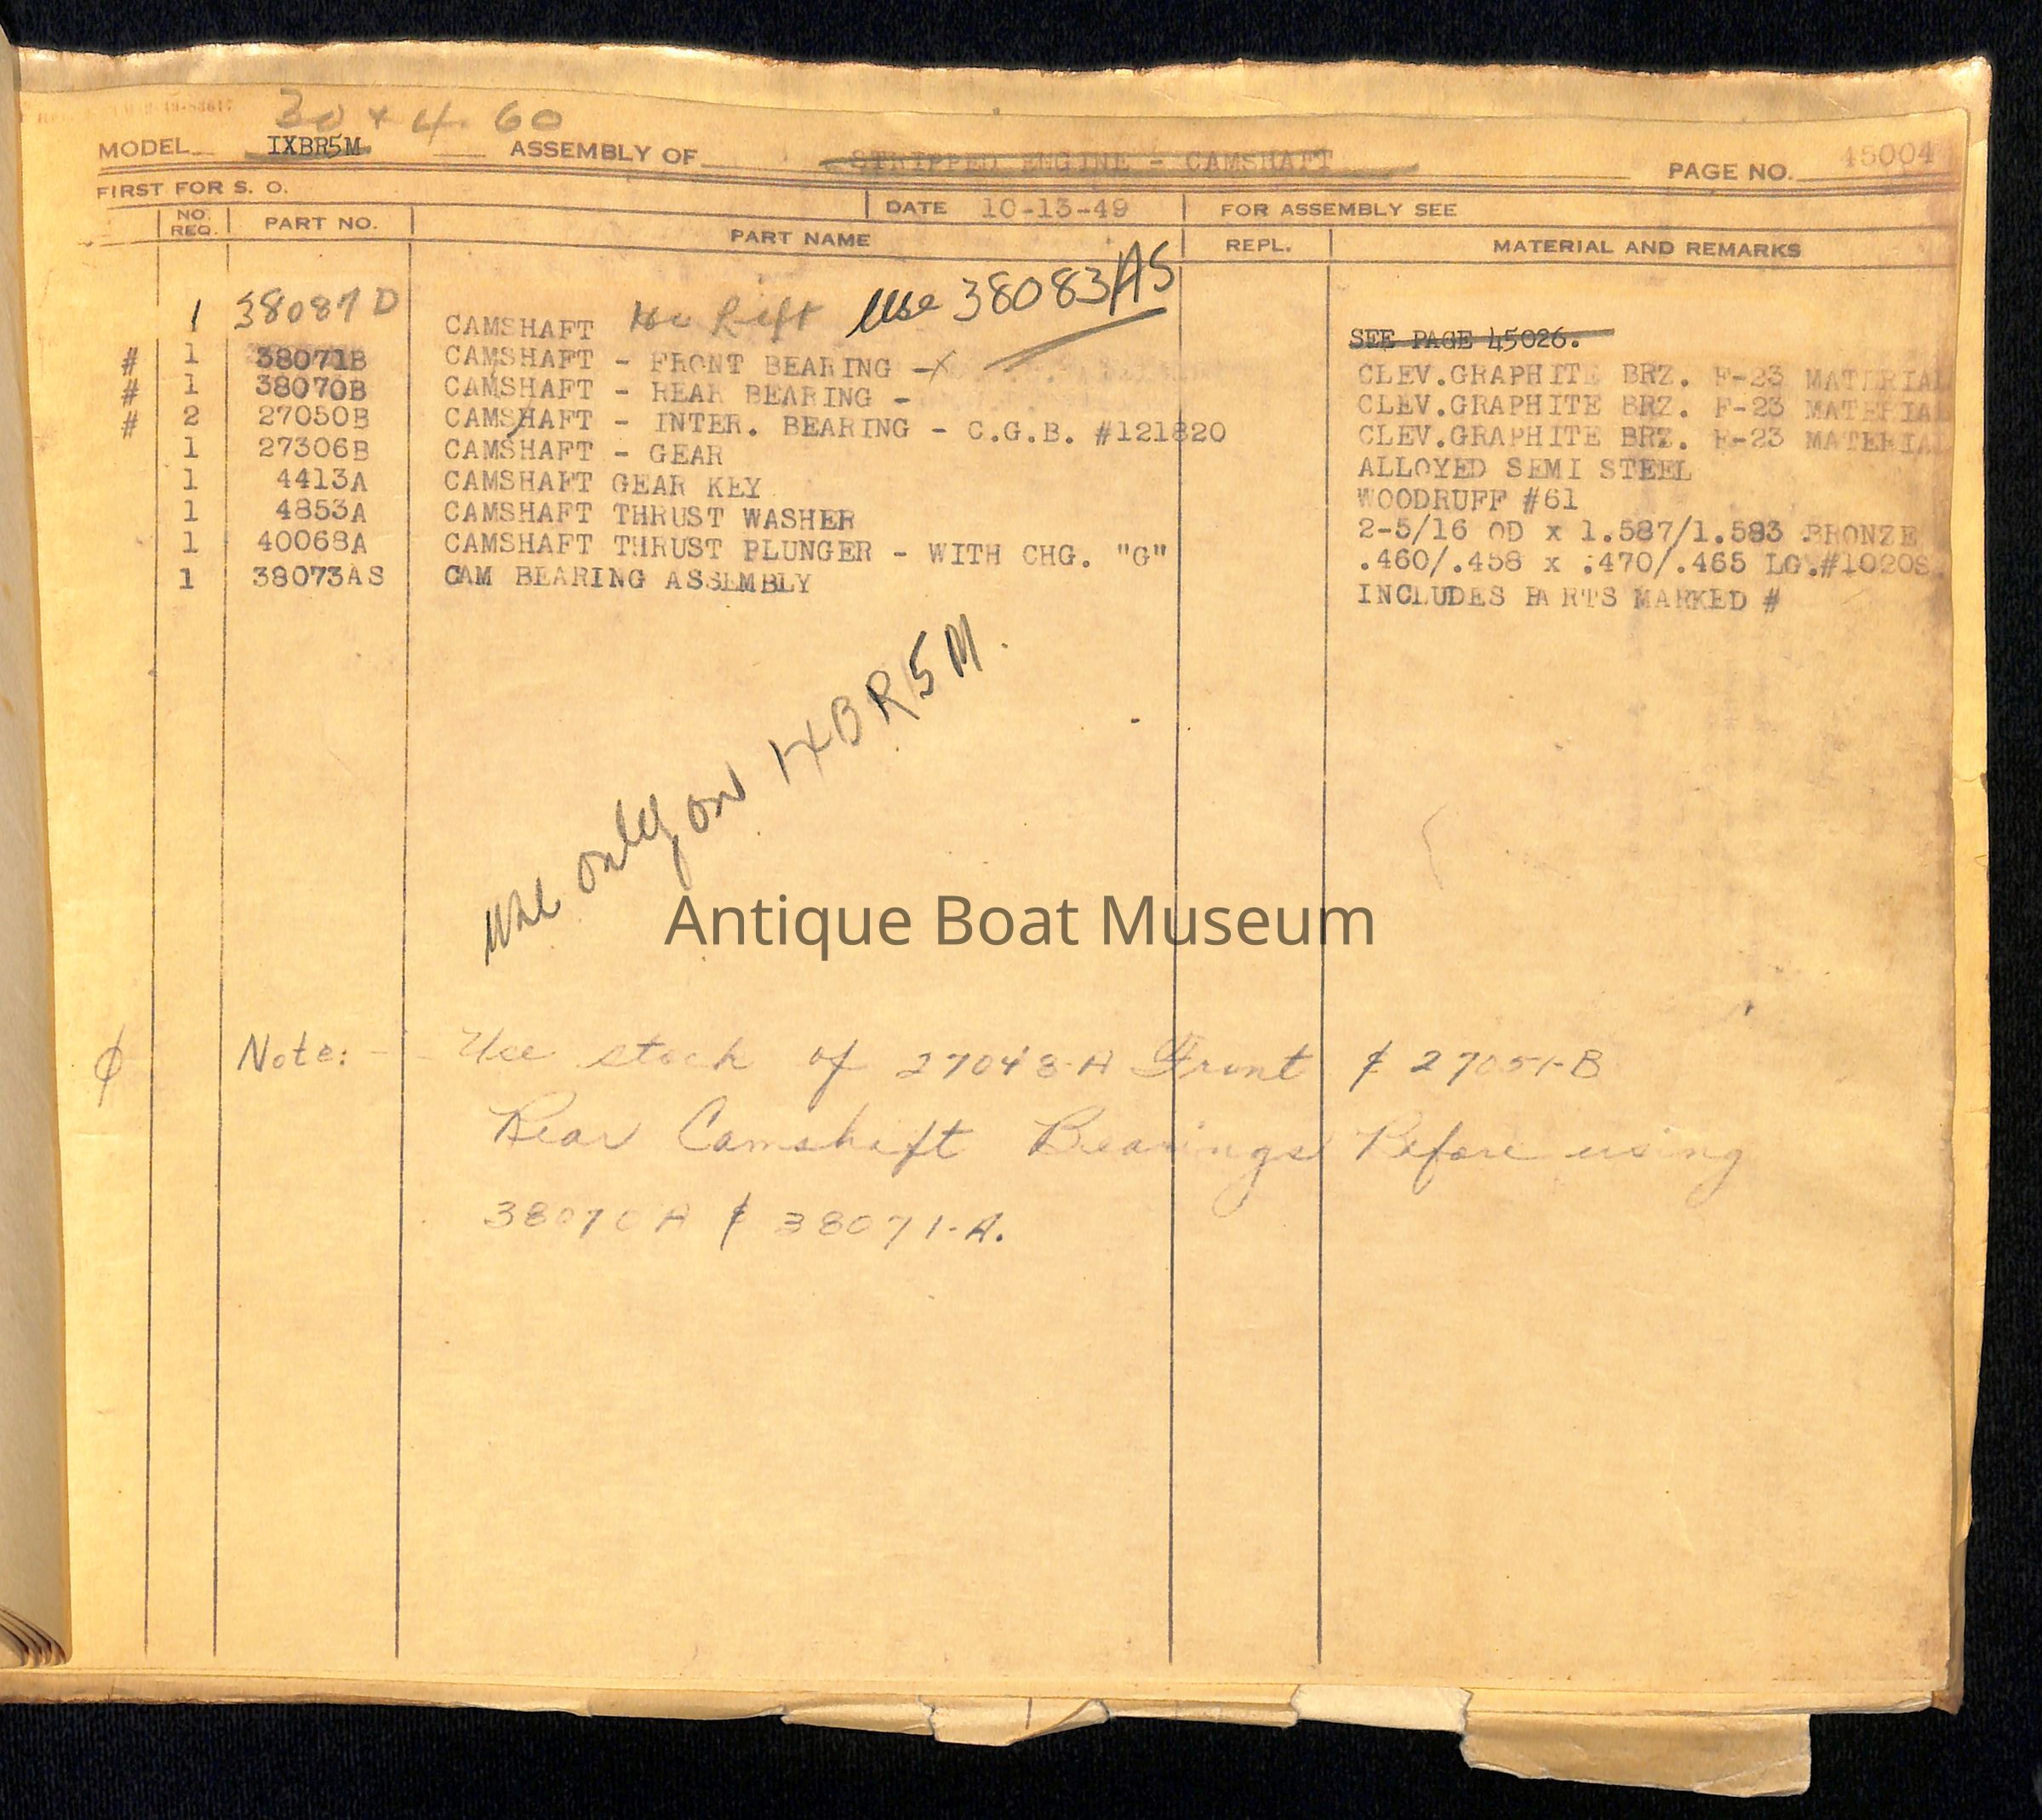 30 x 4.60
MODEL IXBR5M ASSEMBLY OF STRIPPED ENGINE - CAMSHAFT PAGE NO. 45004
FIRST FOR S. O.
DATE 10-13-49 FOR ASSEMBLY SEE
NO. REQ. PART NO. PART NAME REPL. MATERIAL AND REMARKS
1 38087D CAMSHAFT Lift Use 38083AS SEE PAGE 45026.
# 1 38071B CAMSHAFT - FRONT BEARING - X CLEV.GRAPHITE BRZ. F-23 MATERIAL
# 1 38070B CAMSHAFT - REAR BEARING - CLEV.GRAPHITE BRZ. F-23 MATERIAL
# 2 27050B CAMSHAFT - INTER. BEARING - C.G.B. #121820 CLEV.GRAPHITE BRZ. F-23 MATERIAL
1 27306B CAMSHAFT - GEAR ALLOYED SEMI STEEL
1 4413A CAMSHAFT GEAR KEY WOODRUFF #61
1 4853A CAMSHAFT THRUST WASHER 2-5/16 OD x 1.587/1.583 BRONZE
1 40068A CAMSHAFT THRUST PLUNGER - WITH CHG. "G" .460/.458 x .470/.465 LG.#1020S
1 38073AS CAM BEARING ASSEMBLY INCLUDES PARTS MARKED #
use only on 1XBR5M.
Antique Boat Museum
Note: - Use stock of 27048-A Front & 27051-B
Rear Camshift Bearings Before using
38070A & 38071-A.